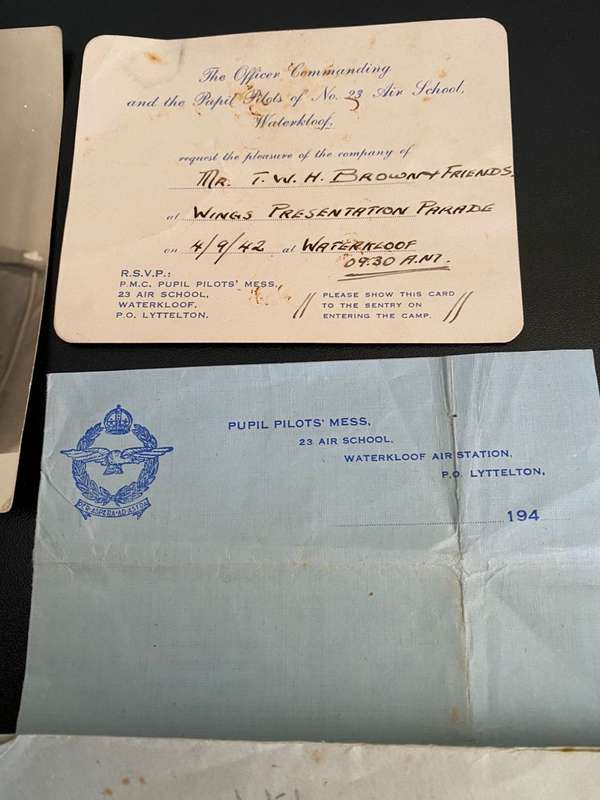 The Officer Commanding
and the Pupil Pilots of No. 23 Air School,
Waterkloof,
request the pleasure of the company of
MR. T. W. H. BROWN & FRIENDS.
at WINGS PRESENTATION PARADE
on 4/9/42 at WATERKLOOF
09.30 A.M.
R.S.V.P.:
P.M.C. PUPIL PILOTS' MESS,
23 AIR SCHOOL,
WATERKLOOF,
P.O. LYTTELTON.
PLEASE SHOW THIS CARD
TO THE SENTRY ON
ENTERING THE CAMP.
PUPIL PILOTS' MESS,
23 AIR SCHOOL,
WATERKLOOF AIR STATION,
P.O. LYTTELTON,
194
PER ASPERA AD ASTRA